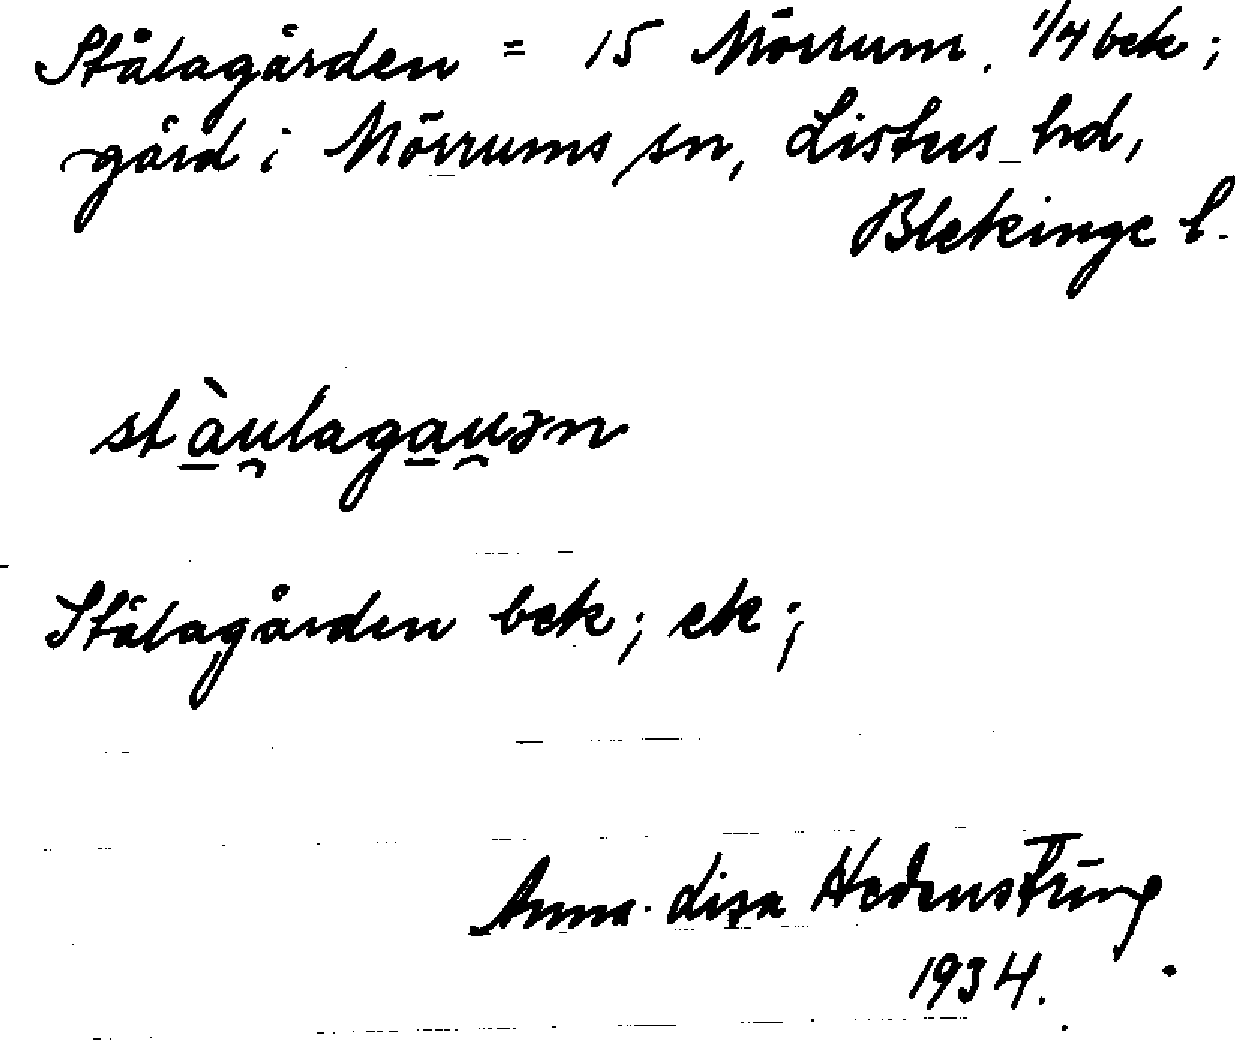 Stålagården = 15 Mörrum. 1/4 bek;
gård i Mörrums sn, Listers hd,
Blekinge l.
stàu̯lagau̯ən
Stålagården bek; ek;
Anna-Lisa Hedenstierna
1934.